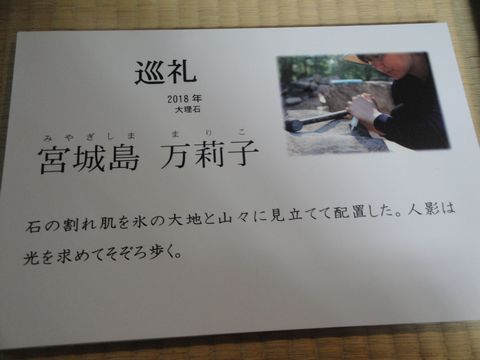 巡礼
2018年
大理石
みやぎしま まりこ
宮城島 万莉子
石の割れ肌を氷の大地と山々に見立てて配置した。人影は
光を求めてそぞろ歩く。